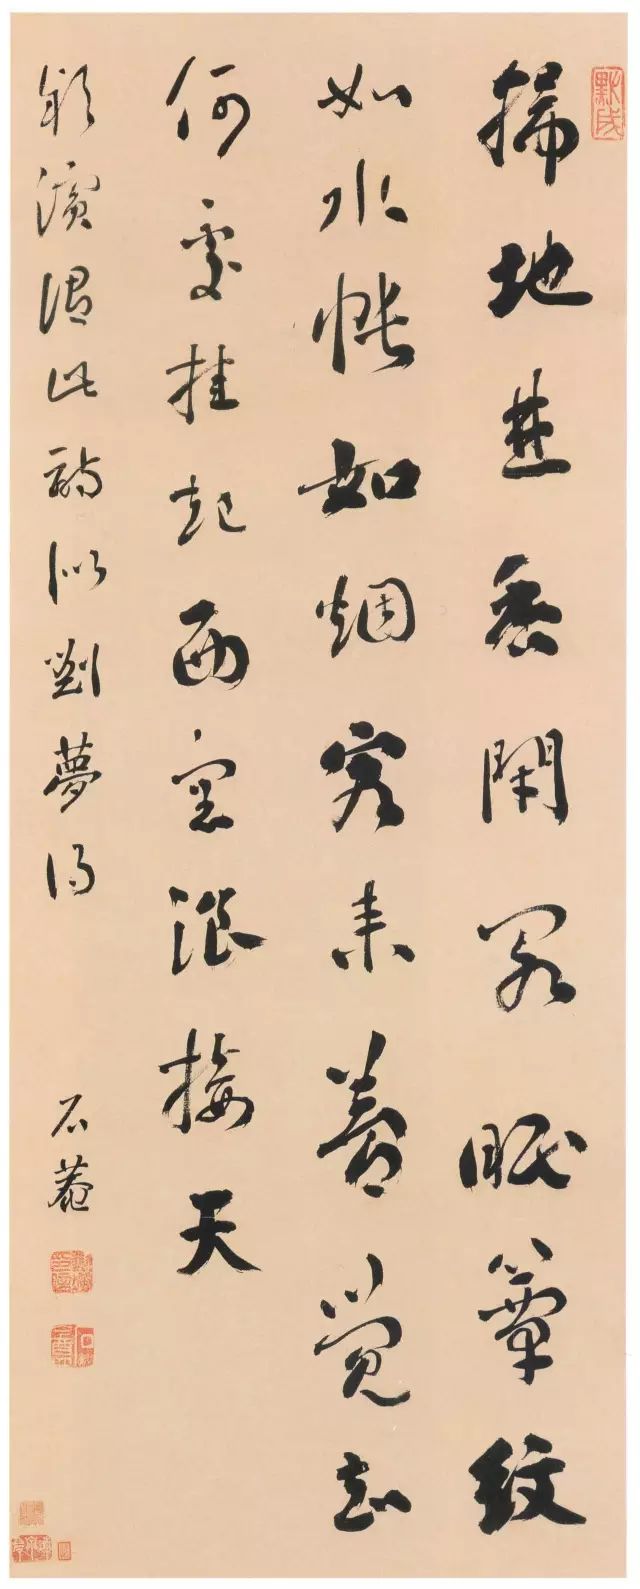 默成
掃地焚香閉閣眠簟紋
如水帳如烟客來夢覺知
何處挂起西窓浪接天
潁濱謂此詩似劉夢得
石菴